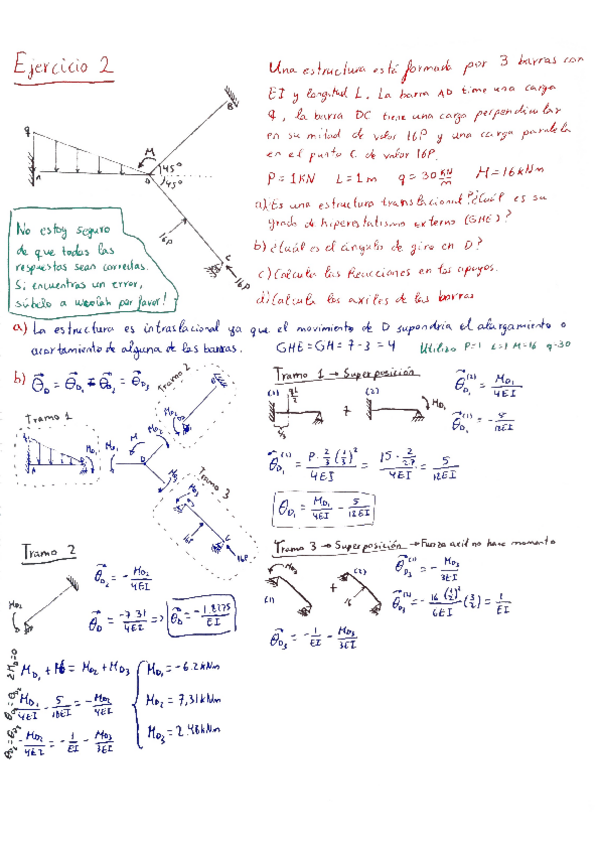 Ejercicio 2
Una estructura está formada por 3 barras con
EI y longitud L. La barra AD tiene una carga
q, la barra DC tiene una carga perpendicular
en su mitad de valor 16P y una carga paralela
en el punto C de valor 16P.
P=1KN L=1m q=30 KN/m M=16kNm
a) ¿Es una estructura translacional? ¿Cuál es su
grado de hiperestatismo externo (GHE)?
b) ¿Cuál es el ángulo de giro en D?
c) Calcula las Reacciones en los apoyos.
d) Calcula los axiles de las barras
q
A
M
D
45°
45°
B
16P
C
16P
No estoy seguro
de que todas las
respuestas sean correctas.
Si encuentras un error,
súbelo a wuolah por favor!
a) La estructura es intraslacional ya que el movimiento de D supondría el alargamiento o
acortamiento de alguna de las barras. GHE=GH=7-3=4 Utilizo P=1 L=1 M=16 q=30
b) θD = θD1 = θD2 = θD3
Tramo 1
Tramo 2
Tramo 3
Tramo 1 → Superposición
(1) + (2) MD1
θD1(2) = MD1/4EI
θD1(1) = -5/12EI
θD1 = MD1/4EI - 5/12EI
Tramo 2
MD2
θD2 = -MD2/4EI
θD = -7.31/4EI => θD = -1.8275/EI
Tramo 3 → Superposición → Fuerza axil no hace momento
MD3
(1) + (2)
16
θD3(1) = -MD3/3EI
θD3 = -1/EI - MD3/3EI
ΣMD=0 MD1 + 16 = MD2 + MD3
θD1=θD2 MD1/4EI - 5/12EI = -MD2/4EI
θD2=θD3 -MD2/4EI = -1/EI - MD3/3EI
MD1 = -6.2kNm
MD2 = 7,31kNm
MD3 = 2.48kNm